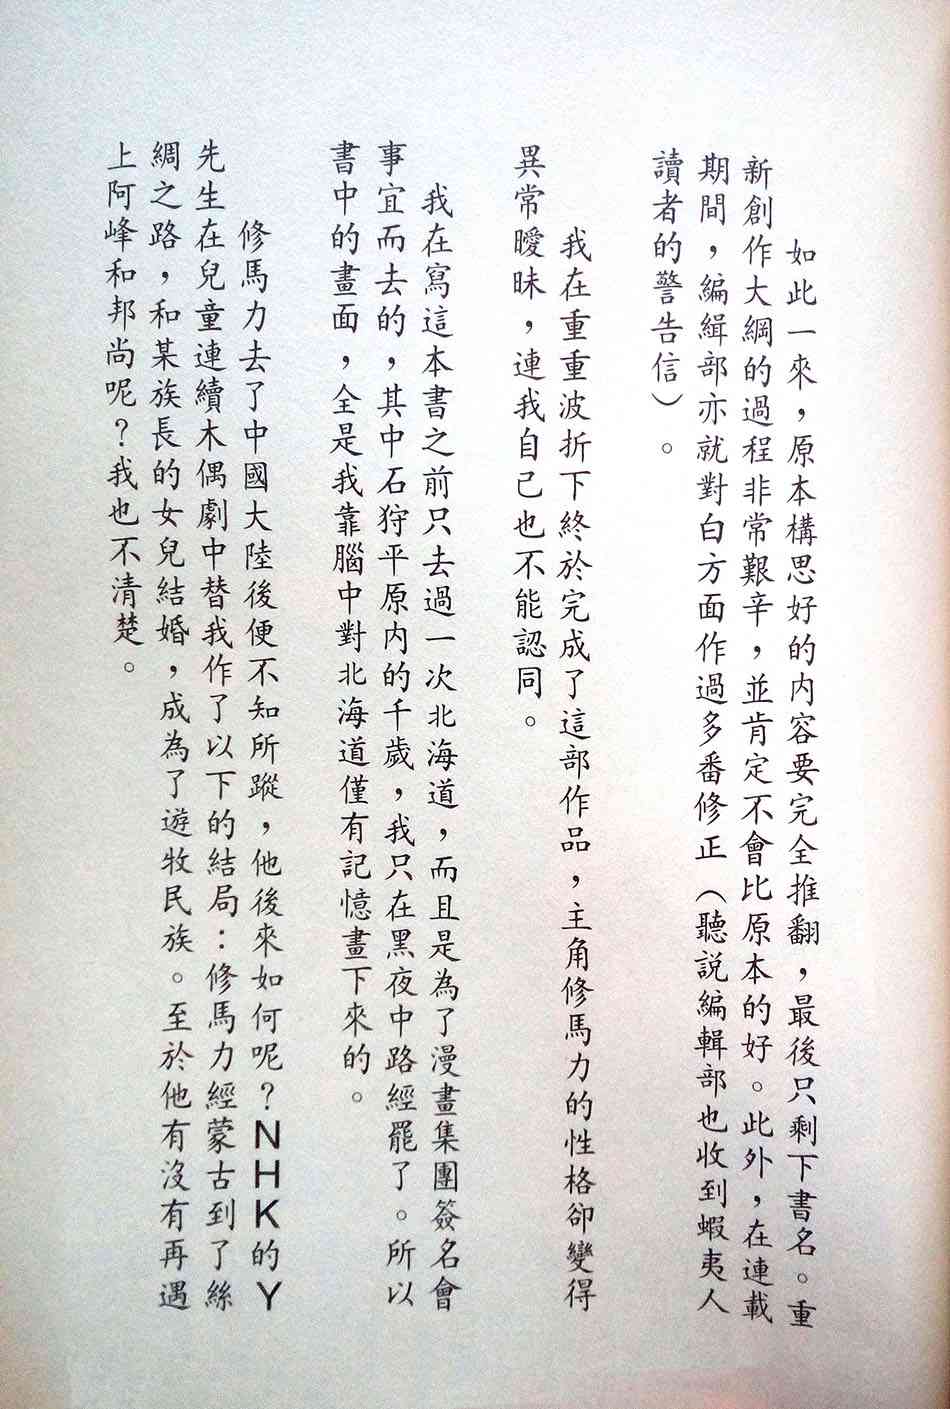 如此一來，原本構思好的內容要完全推翻，最後只剩下書名。重
新創作大綱的過程非常艱辛，並肯定不會比原本的好。此外，在連載
期間，編緝部亦就對白方面作過多番修正（聽説編輯部也收到蝦夷人
讀者的警告信）。
我在重重波折下終於完成了這部作品，主角修馬力的性格卻變得
異常曖昧，連我自己也不能認同。
我在寫這本書之前只去過一次北海道，而且是為了漫畫集團簽名會
事宜而去的，其中石狩平原內的千歲，我只在黑夜中路經罷了。所以
書中的畫面，全是我靠腦中對北海道僅有記憶畫下來的。
修馬力去了中國大陸後便不知所蹤，他後來如何呢？NHK的Y
先生在兒童連續木偶劇中替我作了以下的結局：修馬力經蒙古到了絲
綢之路，和某族長的女兒結婚，成為了遊牧民族。至於他有沒有再遇
上阿峰和邦尚呢？我也不清楚。